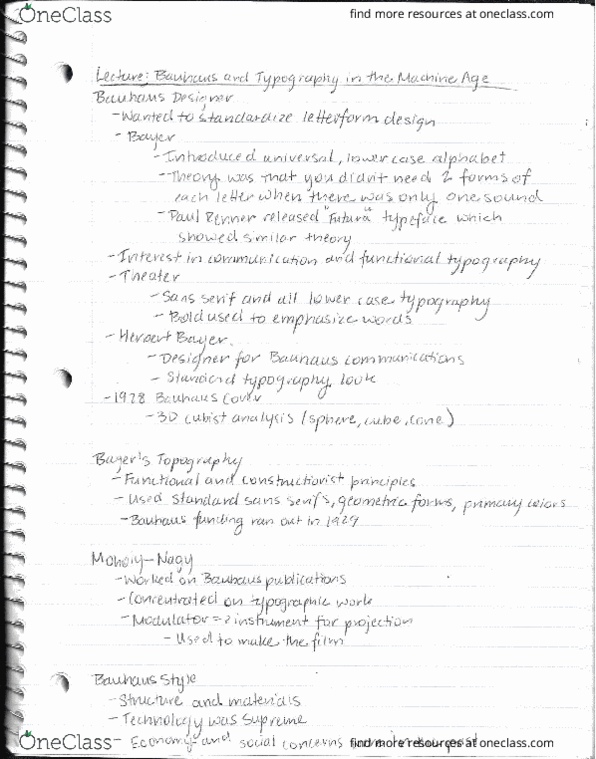 OneClass
find more resources at oneclass.com
Lecture: Bauhaus and Typography in the Machine Age
Bauhaus Designer
- Wanted to standardize letterform design
- Bayer
- Introduced universal, lower case alphabet
- Theory was that you didn't need 2 forms of
each letter when there was only one sound
- Paul Renner released "Futura" typeface which
showed similar theory
- Interest in communication and functional typography
- Theater
- Sans serif and all lower case typography
- Bold used to emphasize words
- Herbert Bayer
- Designer for Bauhaus communications
- Standard typography look
- 1928 Bauhaus Cover
- 3D cubist analysis (sphere, cube, cone)
Bayer's Topography
- Functional and constructionist principles
- Used standard sans serifs, geometric forms, primary colors
- Bauhaus funding ran out in 1929
Moholy-Nagy
- Worked on Bauhaus publications
- Concentrated on typographic work
- Modulator => instrument for projection
- Used to make the film
Bauhaus Style
- Structure and materials
- Technology was supreme
- Economy and social concerns
OneClass
find more resources at oneclass.com